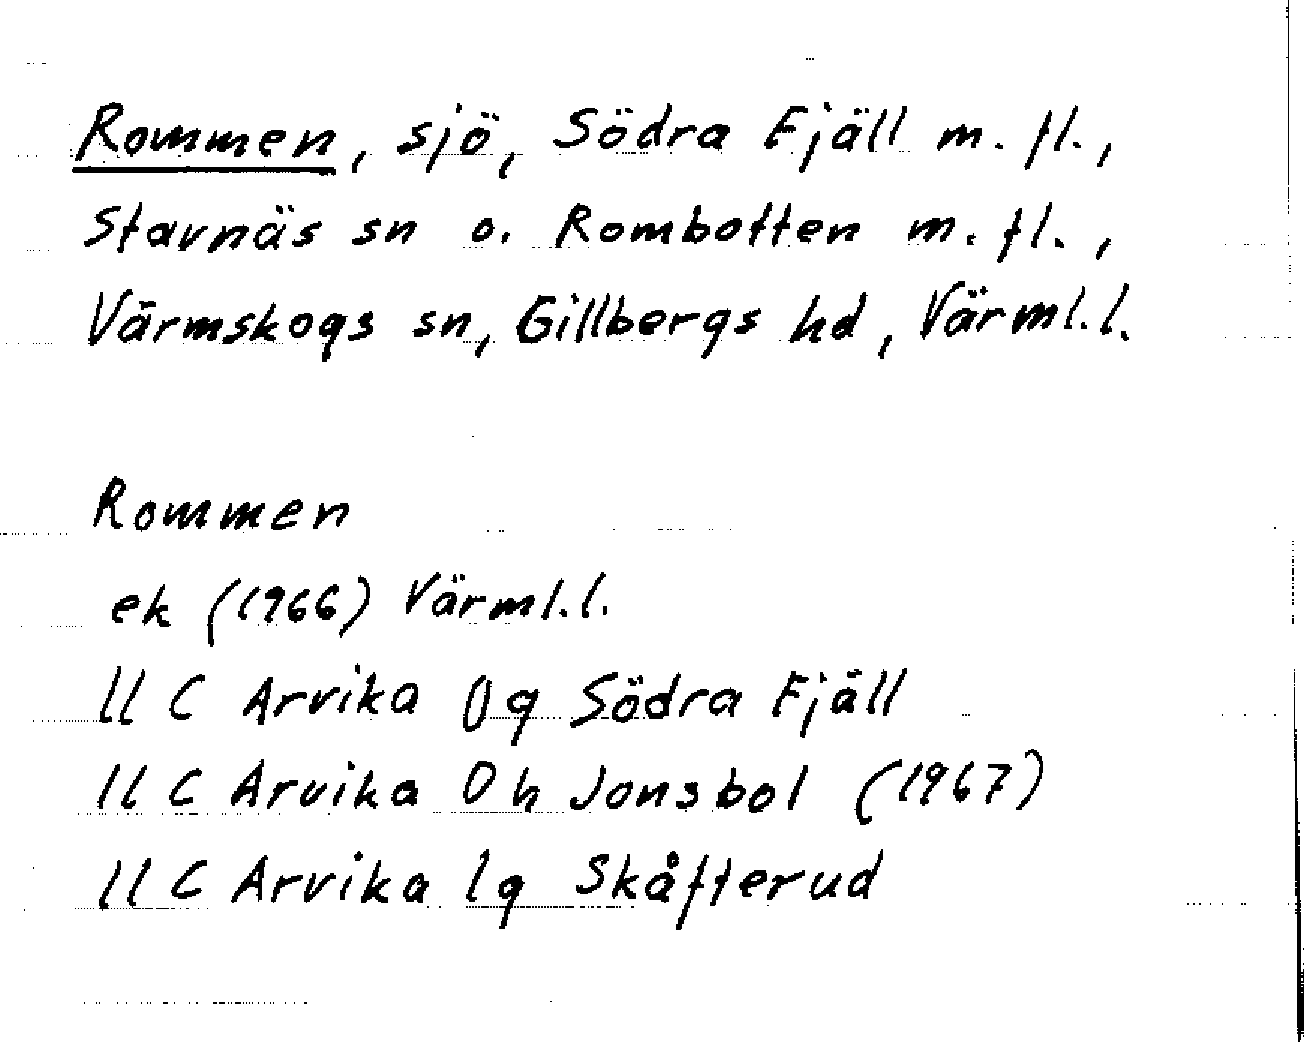 Rommen, sjö, Södra Fjäll m. fl.,
Stavnäs sn o. Rombotten m. fl.,
Värmskogs sn, Gillbergs hd, Värml.l.
Rommen
ek (1966) Värml.l.
11 C Arvika 0g Södra Fjäll
11 C Arvika 0h Jonsbol (1967)
11 C Arvika 1g Skåfterud